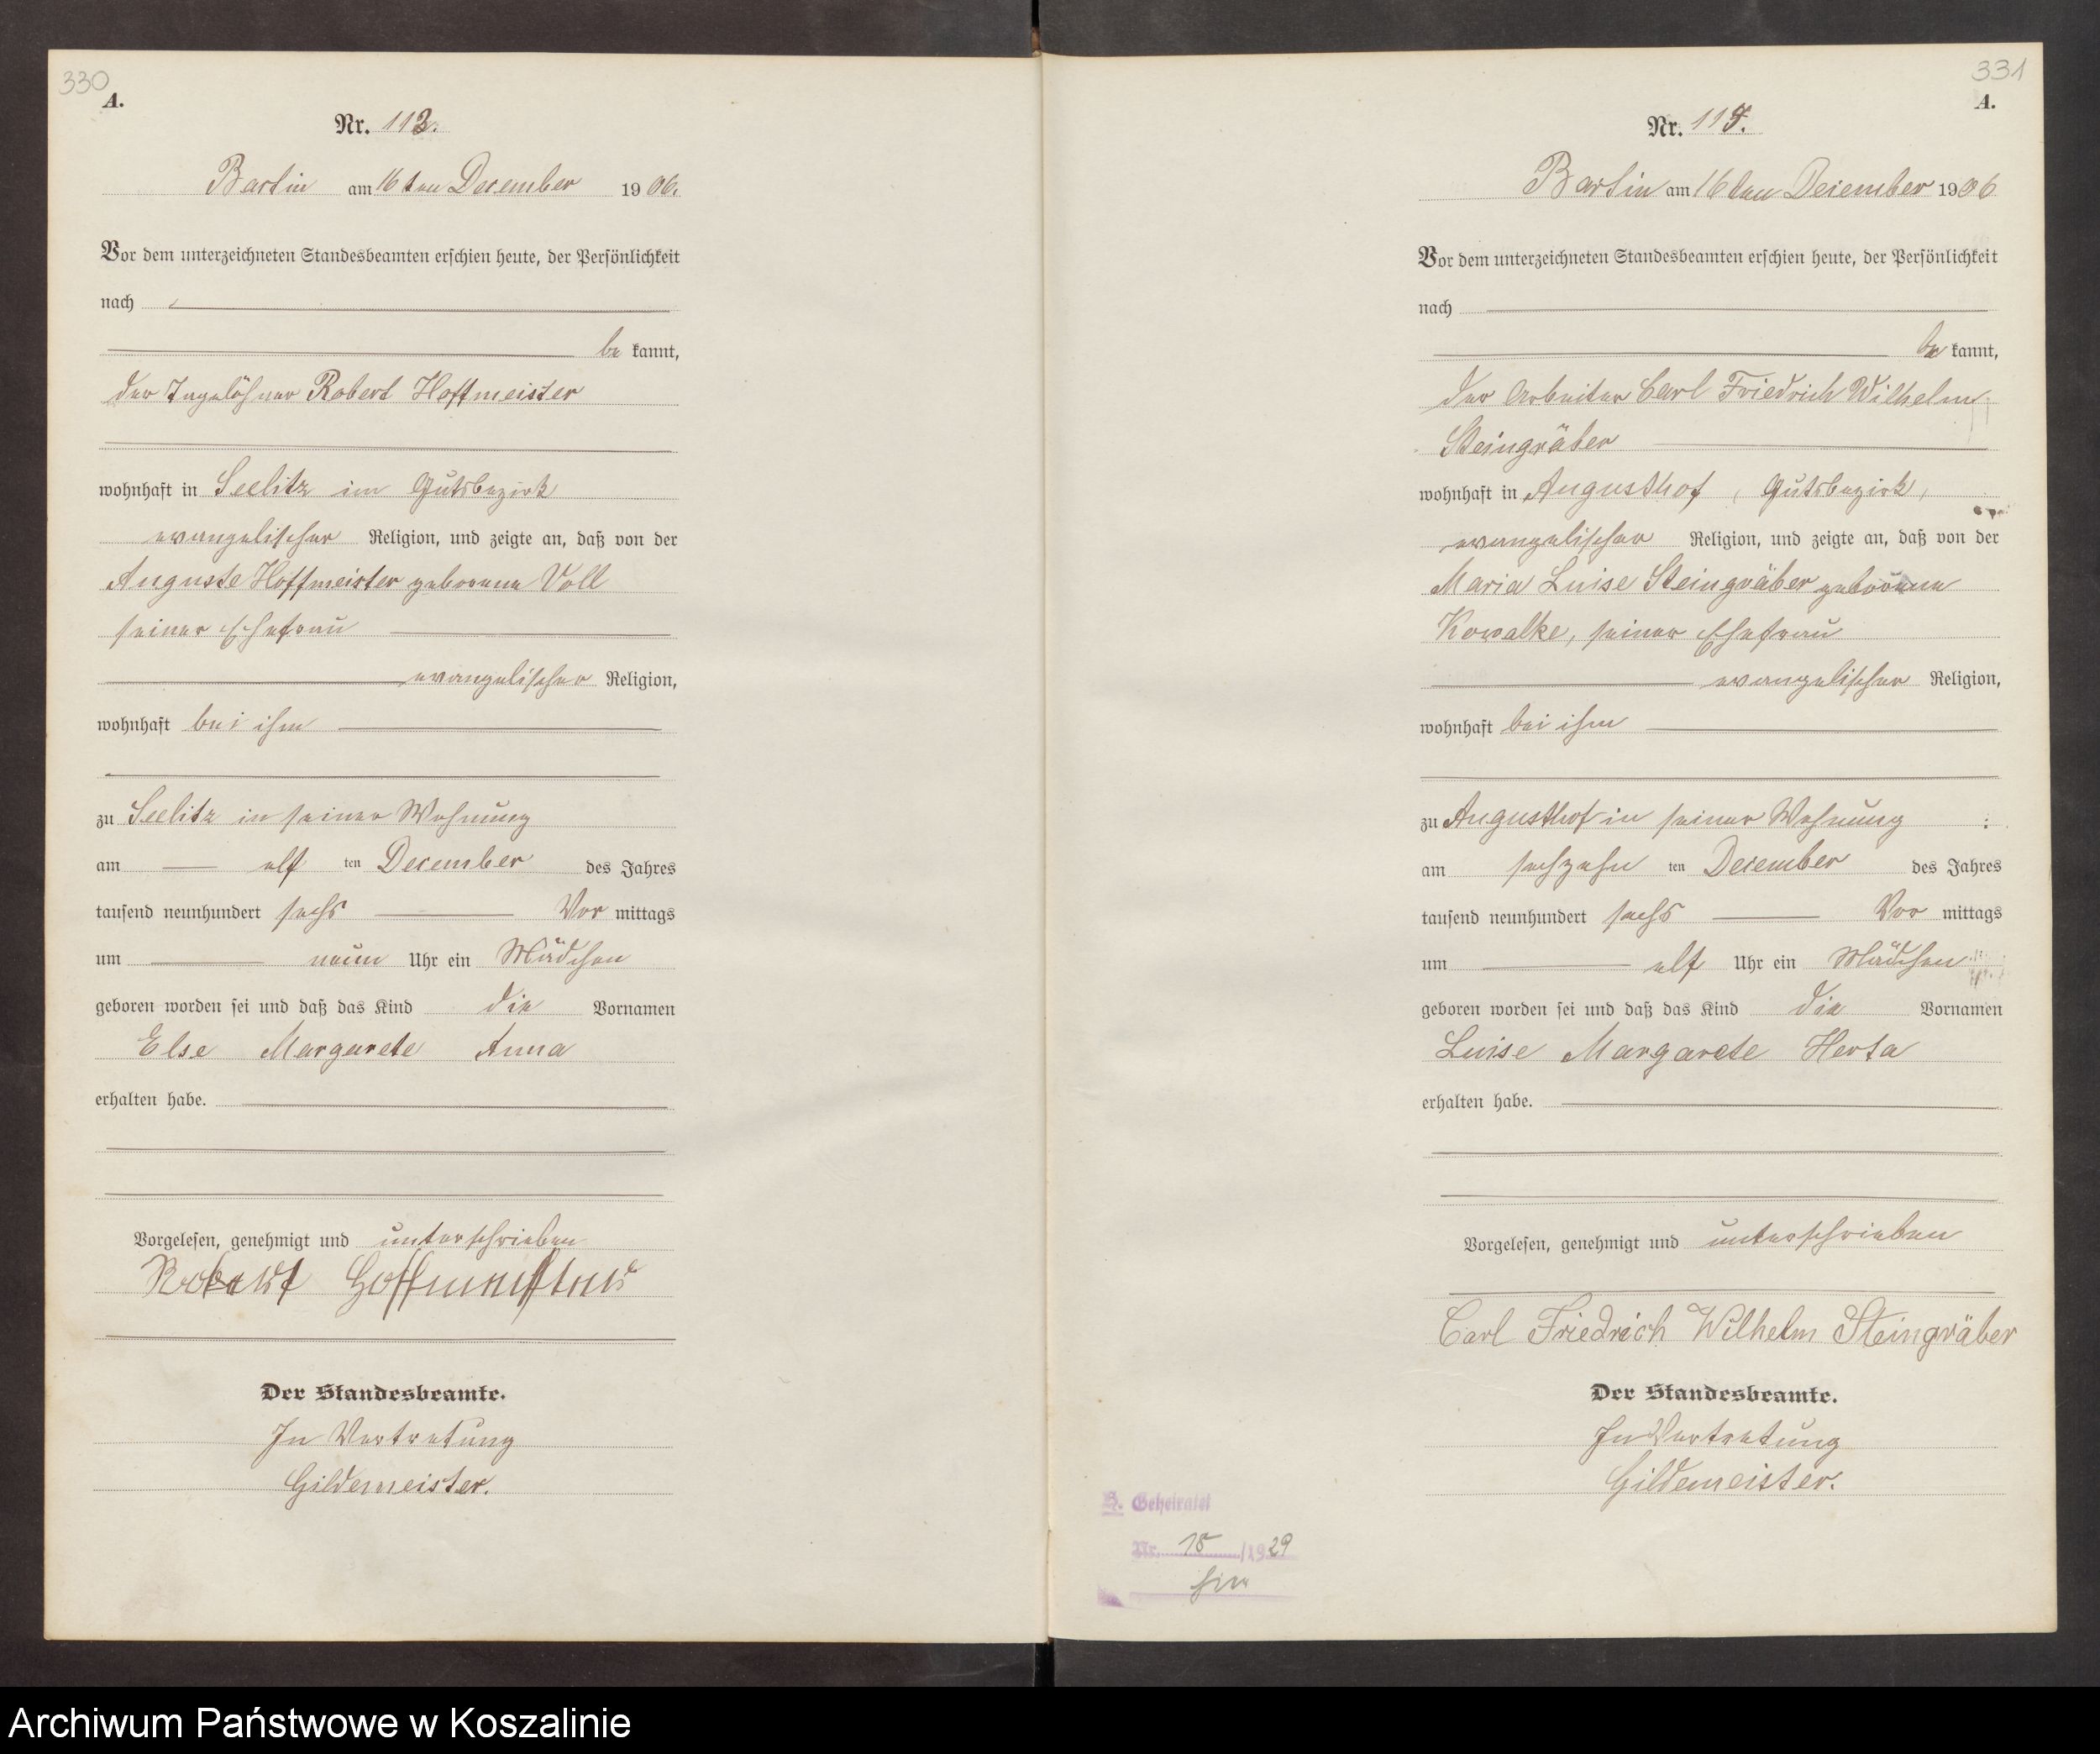 330
A.
Nr. 113.
Bartin am 16ten December 1906.
Vor dem unterzeichneten Standesbeamten erschien heute, der Persönlichkeit
nach
be kannt,
der Tagelöhner Robert Hoffmeister
wohnhaft in Seelitz im Gutsbezirk
evangelischer Religion, und zeigte an, daß von der
Auguste Hoffmeister geborene Voll
seiner Ehefrau
evangelischer Religion,
wohnhaft bei ihm
zu Seelitz in seiner Wohnung
am elf ten December des Jahres
tausend neunhundert sechs Vor mittags
um neun Uhr ein Mädchen
geboren worden sei und daß das Kind die Vornamen
Else Margarete Anna
erhalten habe.
Vorgelesen, genehmigt und unterschrieben
Robert Hoffmeister
Der Standesbeamte.
In Vertretung
Gildemeister.
331
A.
Nr.
Bartin am 16ten December 1906
Vor dem unterzeichneten Standesbeamten erschien heute, der Persönlichkeit
nach
be kannt,
der Arbeiter Carl Friedrich Wilhelm
Steingräber
wohnhaft in Augusthof, Gutsbezirk,
evangelischer Religion, und zeigte an, daß von der
Maria Luise Steingräber geborene
Kowalke, seiner Ehefrau
evangelischer Religion,
wohnhaft bei ihm
zu Augusthof in seiner Wohnung
am sechzehn ten December des Jahres
tausend neunhundert sechs Vor mittags
um elf Uhr ein Mädchen
geboren worden sei und daß das Kind die Vornamen
Luise Margarete Herta
erhalten habe.
Vorgelesen, genehmigt und unterschrieben
Carl Friedrich Wilhelm Steingräber
Der Standesbeamte.
In Vertretung
Gildemeister.
Geheiratet
Nr. 18/1929
Archiwum Państwowe w Koszalinie